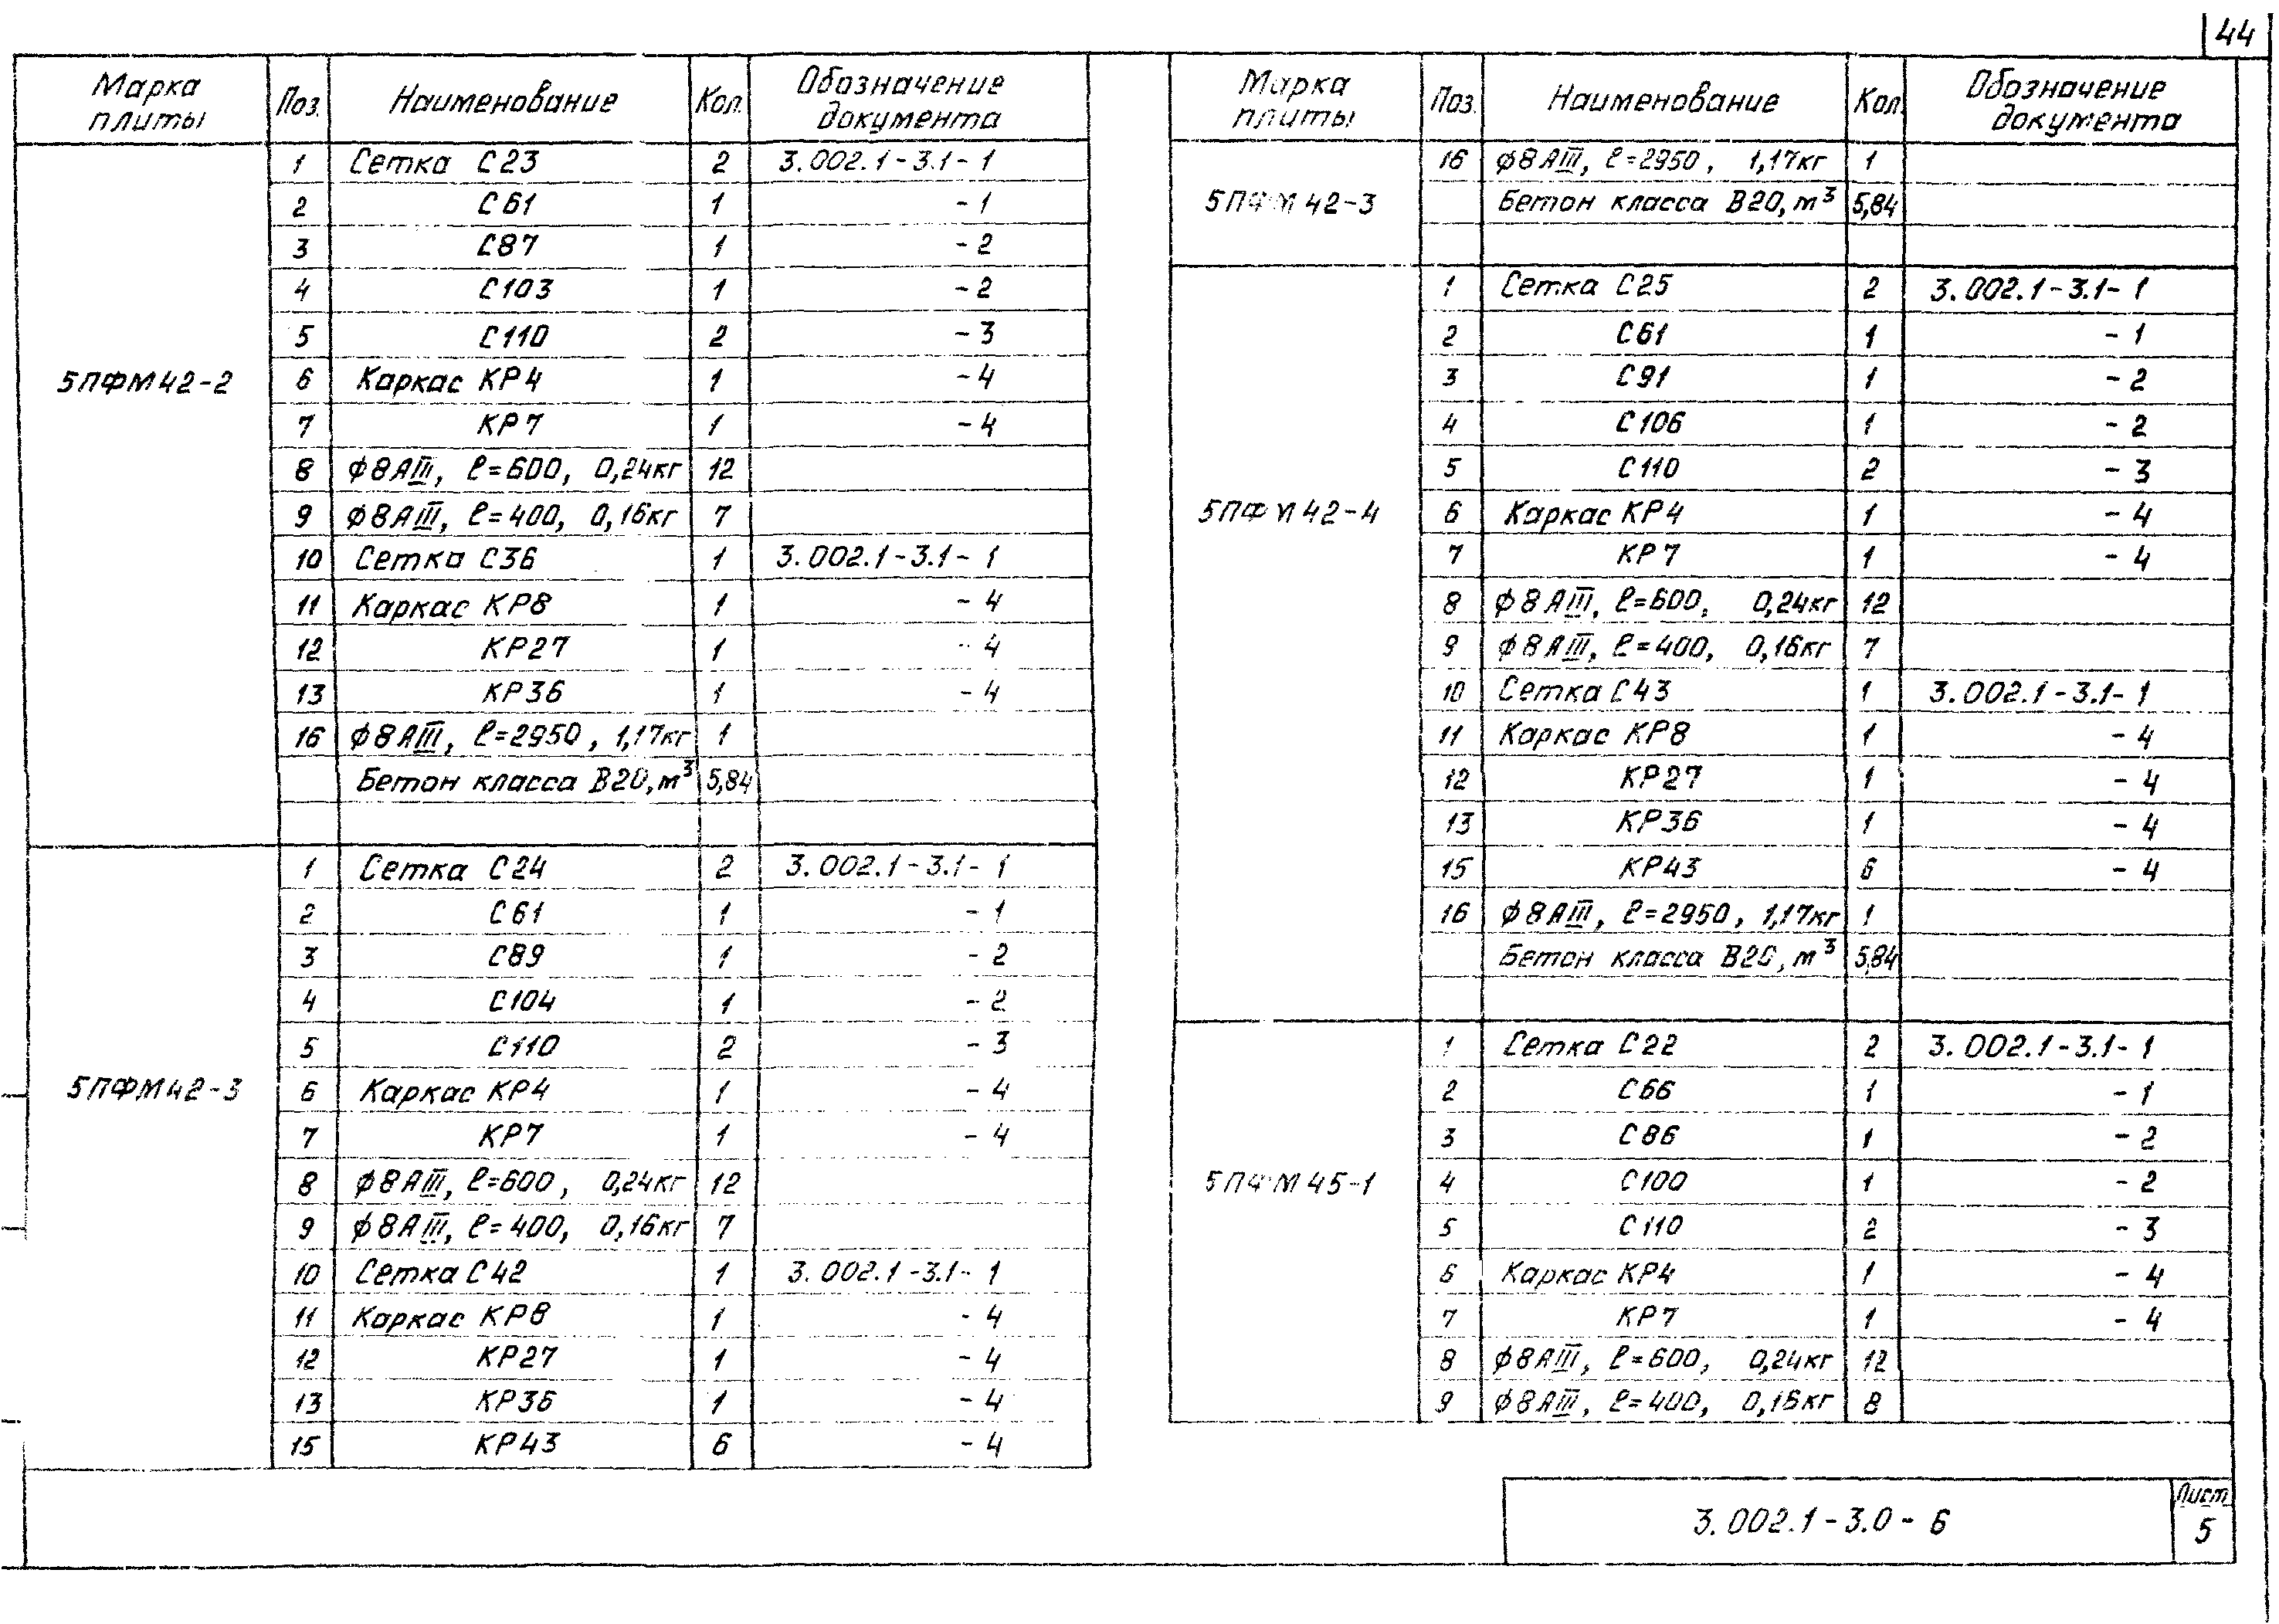 44
Марка плиты Поз. Наименование Кол. Обозначение документа
5ПФМ42-2
1 Сетка С23 2 3.002.1-3.1-1
2 С61 1 -1
3 С87 1 -2
4 С103 1 -2
5 С110 2 -3
6 Каркас КР4 1 -4
7 КР7 1 -4
8 ф8АIII, ℓ=600, 0,24кг 12
9 ф8АIII, ℓ=400, 0,16кг 7
10 Сетка С36 1 3.002.1-3.1-1
11 Каркас КР8 1 -4
12 КР27 1 -4
13 КР36 1 -4
16 ф8АIII, ℓ=2950, 1,17кг 1
Бетон класса В20, м³ 5,84
5ПФМ42-3
1 Сетка С24 2 3.002.1-3.1-1
2 С61 1 -1
3 С89 1 -2
4 С104 1 -2
5 С110 2 -3
6 Каркас КР4 1 -4
7 КР7 1 -4
8 ф8АIII, ℓ=600, 0,24кг 12
9 ф8АIII, ℓ=400, 0,16кг 7
10 Сетка С42 1 3.002.1-3.1-1
11 Каркас КР8 1 -4
12 КР27 1 -4
13 КР36 1 -4
15 КР43 6 -4
Марка плиты Поз. Наименование Кол. Обозначение документа
5ПФМ42-3
16 ф8АIII, ℓ=2950, 1,17кг 1
Бетон класса В20, м³ 5,84
5ПФМ42-4
1 Сетка С25 2 3.002.1-3.1-1
2 С61 1 -1
3 С91 1 -2
4 С106 1 -2
5 С110 2 -3
6 Каркас КР4 1 -4
7 КР7 1 -4
8 ф8АIII, ℓ=600, 0,24кг 12
9 ф8АIII, ℓ=400, 0,16кг 7
10 Сетка С43 1 3.002.1-3.1-1
11 Каркас КР8 1 -4
12 КР27 1 -4
13 КР36 1 -4
15 КР43 6 -4
16 ф8АIII, ℓ=2950, 1,17кг 1
Бетон класса В20, м³ 5,84
5ПФМ45-1
1 Сетка С22 2 3.002.1-3.1-1
2 С66 1 -1
3 С86 1 -2
4 С100 1 -2
5 С110 2 -3
6 Каркас КР4 1 -4
7 КР7 1 -4
8 ф8АIII, ℓ=600, 0,24кг 12
9 ф8АIII, ℓ=400, 0,16кг 8
3.002.1-3.0-6
Лист
5